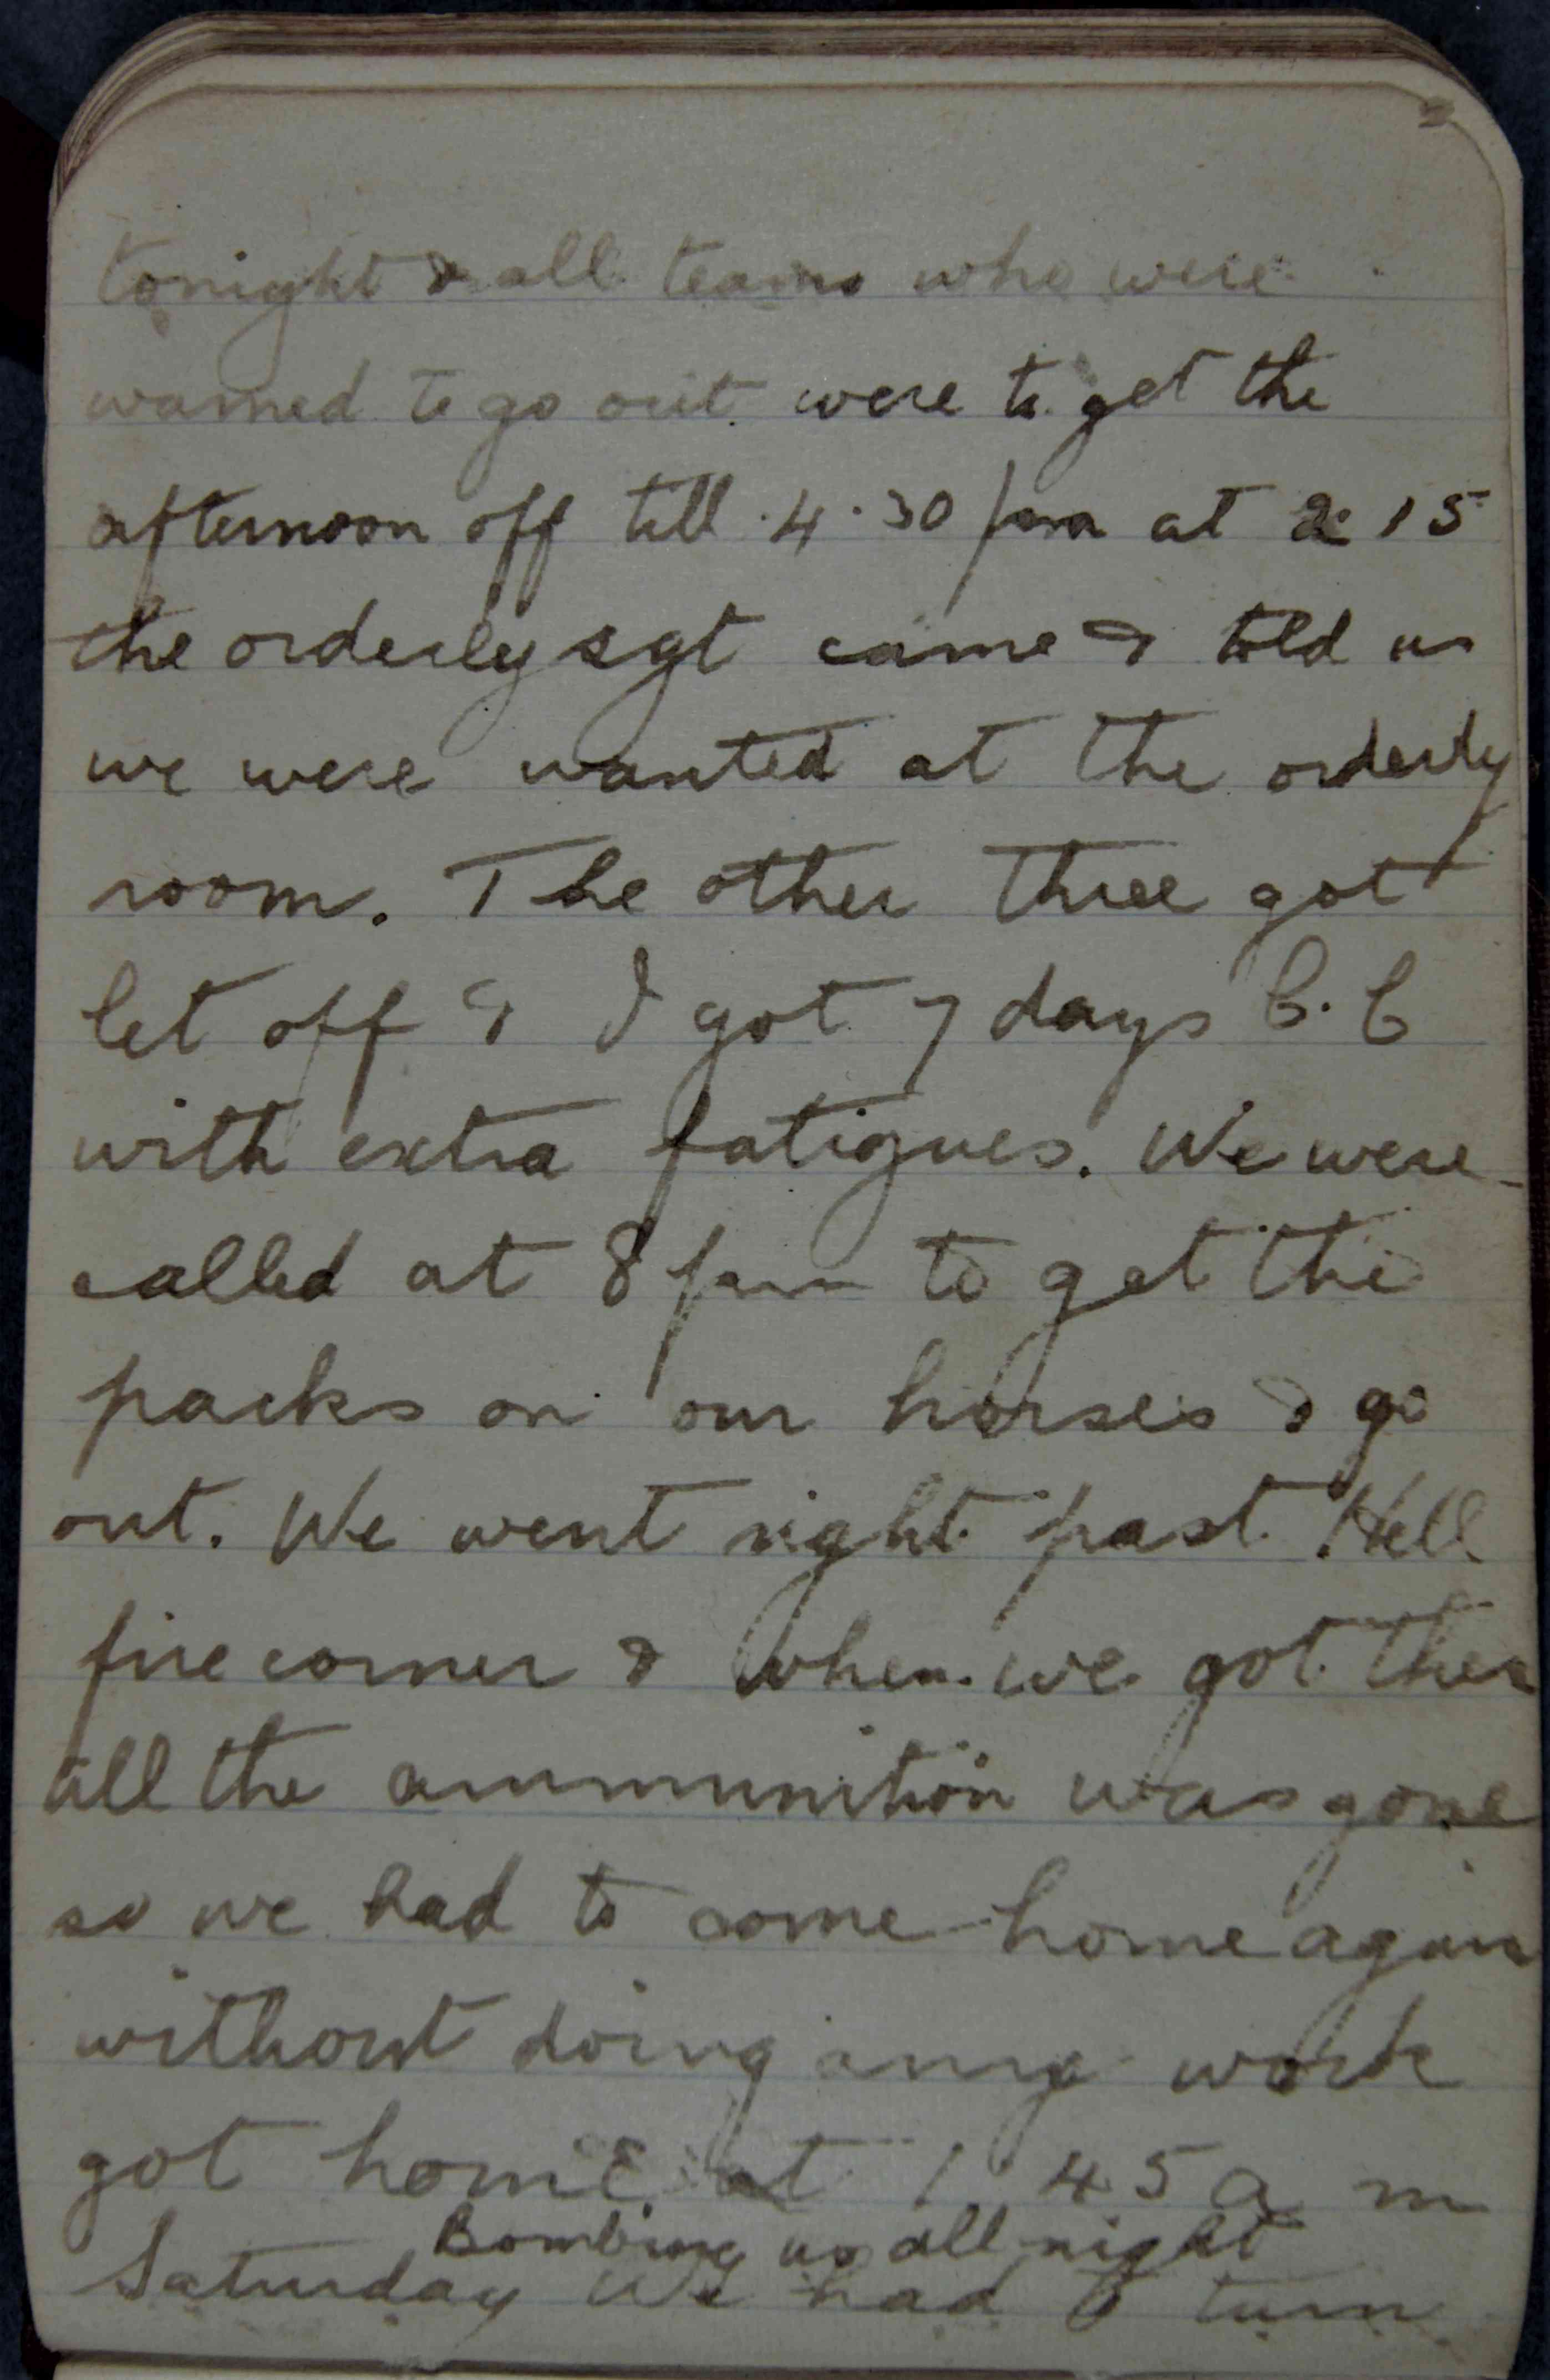 tonight & all teams who were
warned to go out were to get the
afternoon off till 4.30 pm at 2.15
the orderly sgt came & told us
we were wanted at the orderly
room. The other three got
let off & I got 7 days C.C
with extra fatigues. We were
called at 8 pm to get the
packs on our horses & go
out. We went right past Hell
fire corner & when we got ther
all the ammunition was gone
so we had to come home again
without doing any work
got home at 1 45 a m
Bombing us all night
Saturday We had to turn